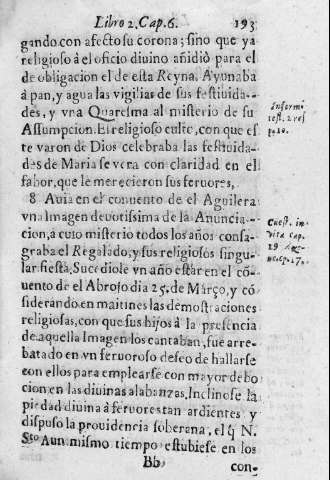 Libro 2. Cap. 6. 193
gando con afecto su corona; sino que ya
religioso à el oficio diuino añidiò para el
de obligacion el de esta Reyna. Ayunaba
à pan, y agua las vigilias de sus festiuida-
des, y vna Quaresma al misterio de su
Assumpcion. El religioso culto, con que es
te varon de Dios celebraba las festiuida-
des de Maria se vera con claridad en el
fabor, que le merecieron sus feruores.
8 Auia en el conuento de el Aguilera
vna Imagen deuotisima de la Anuncia-
cion, à cuio misterio todos los años consa-
graba el Regalado, y sus religiosos singu-
lar fiesta. Sucediole vn año estàr en el cõ-
uento de el Abrojo dia 25. de Março, y cõ
siderando en maitines las demostraciones
religiosas, con que sus hijos à la presencia
de aquella Imagen los cantaban, fue arre-
batado en vn feruoroso deseo de hallarse
con ellos para emplearse con mayor debo
cion en las diuinas alabanzas. Inclinose la
piedad diuina à feruores tan ardientes y
dispuso la prouidencia soberana, el q̃ N.
Sto Aun mismo tiempo estubiese en los
Bb con-
Informi
test. 2 res
Cuest. in-
vita cap.
29